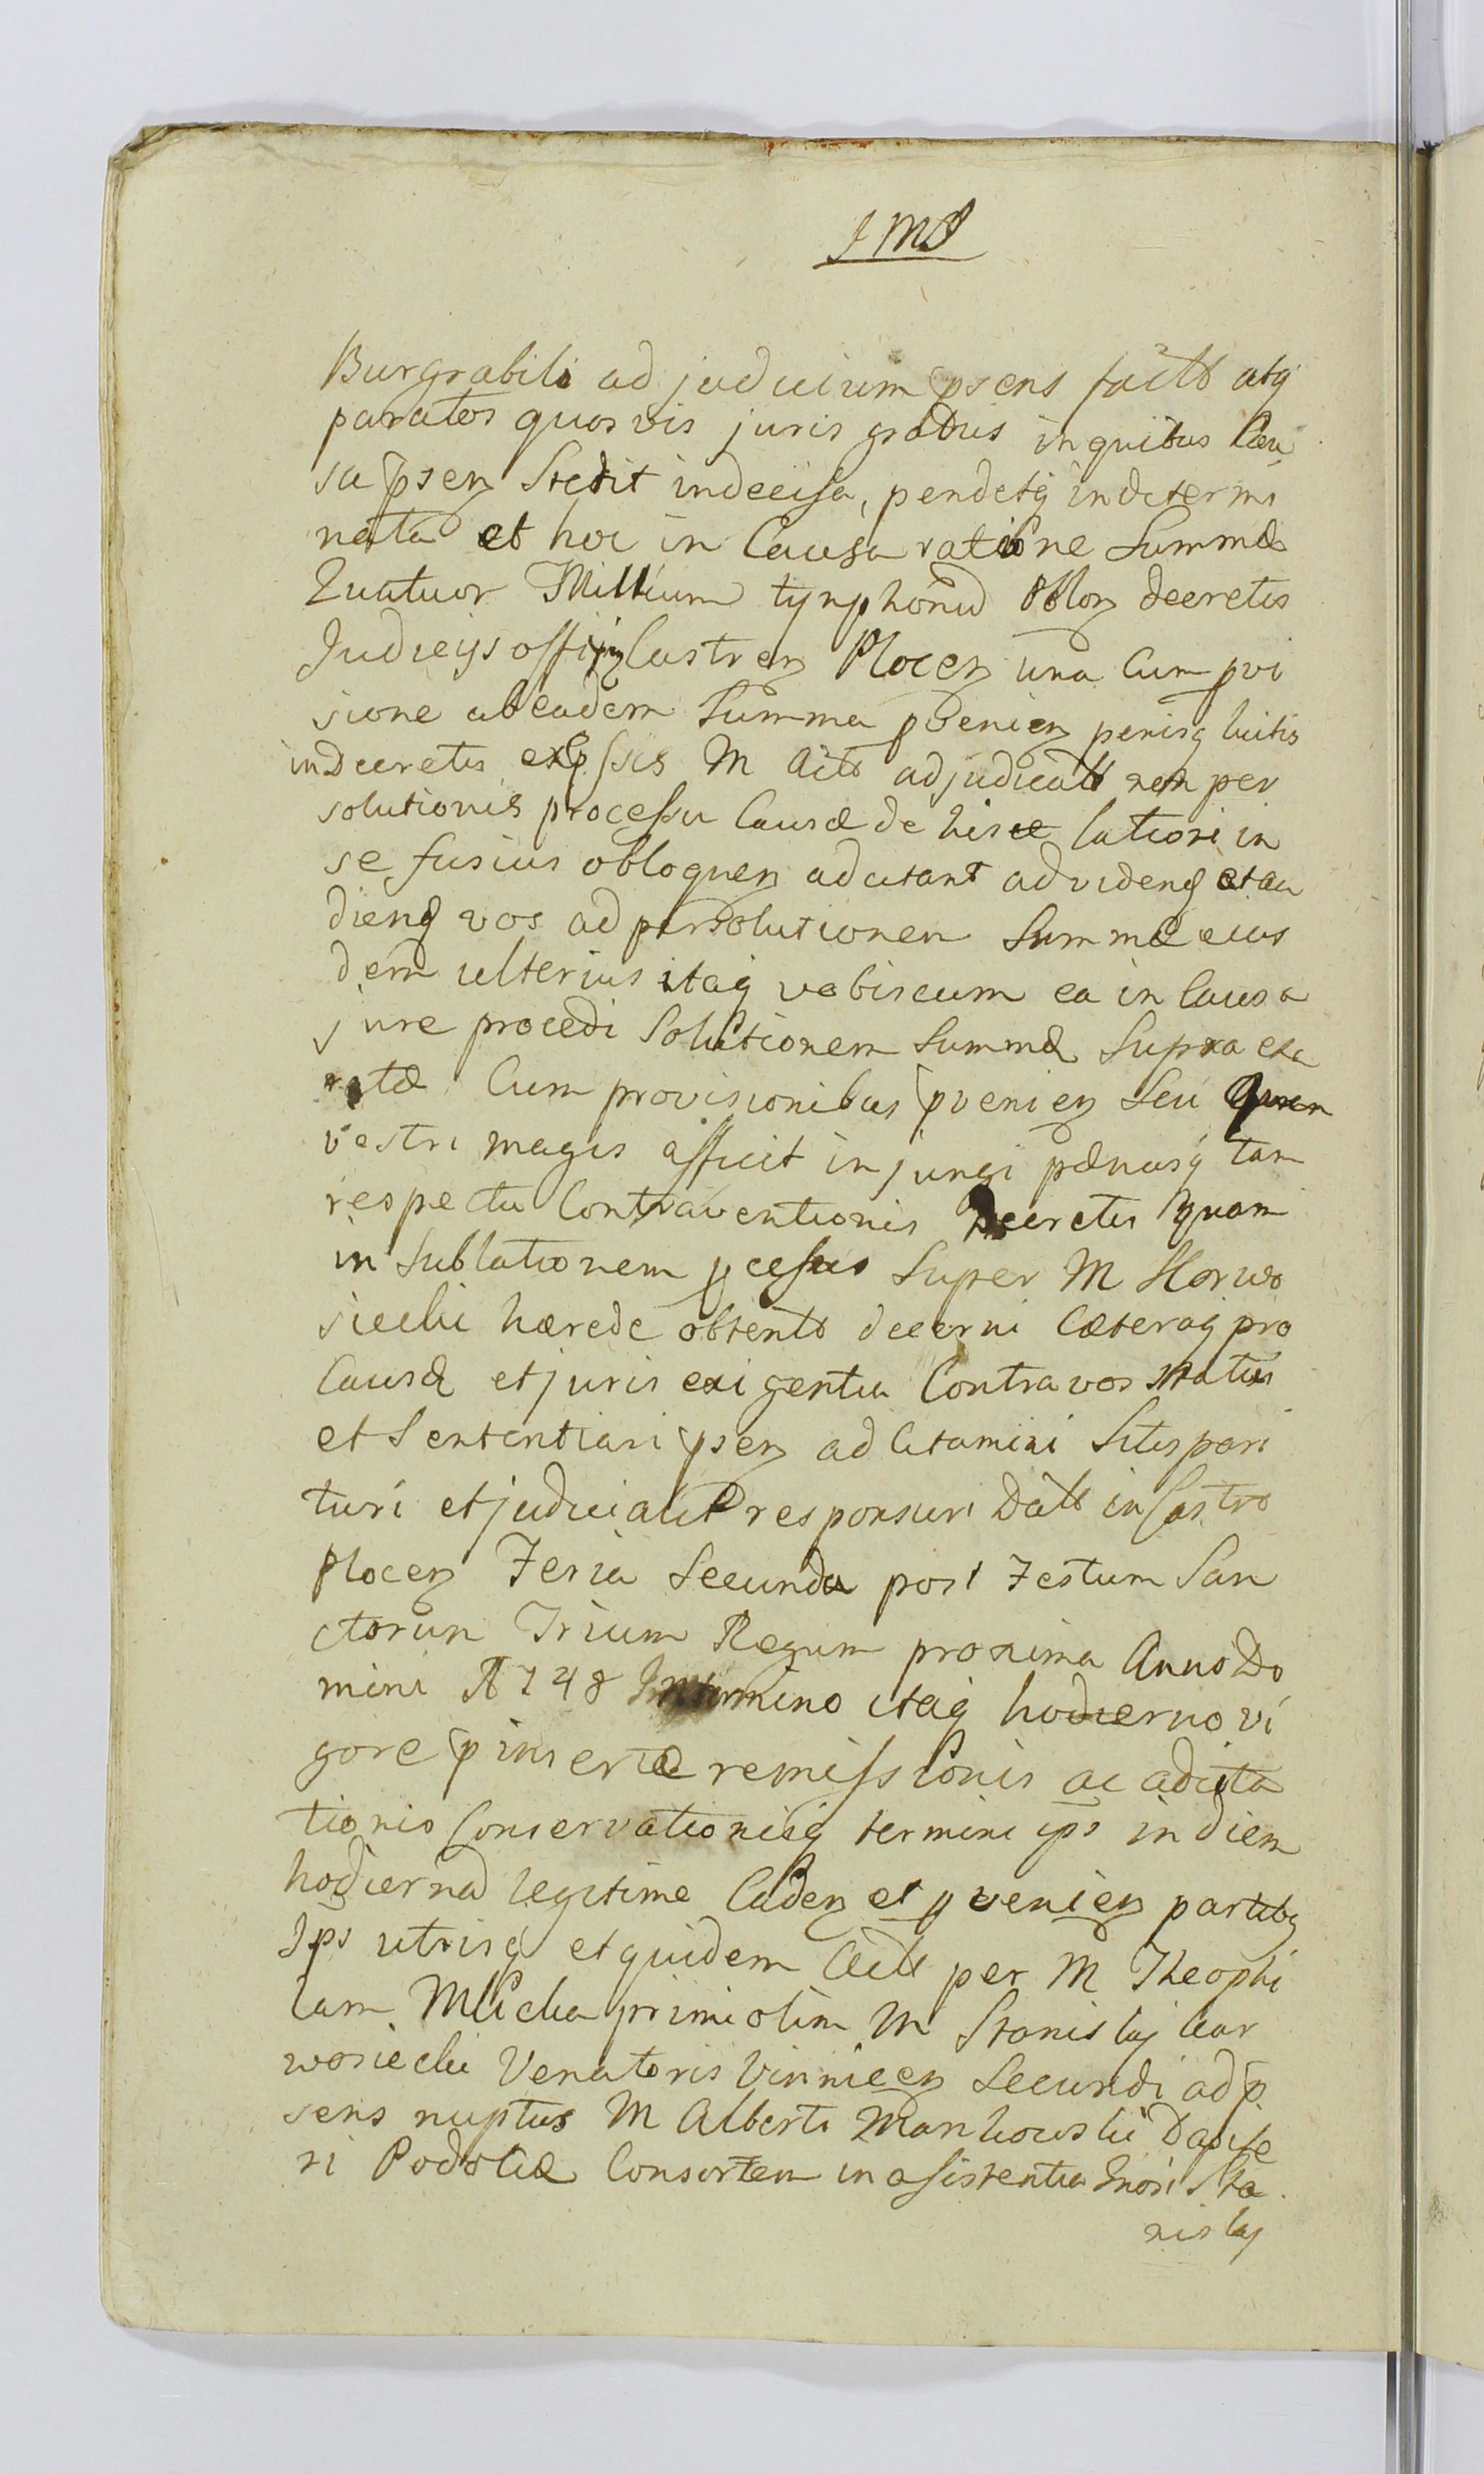 JMJ
Burgrabili ad judicium psens factt atq
paratos quosvis juris gradus in quibus Cau
sa psen Stetit indecisa, pendetq indetermi
nata et hoc in Causa ratione Summæ
Quatuor Millium tynphonu Polon decretis
Judicijs offij Castren Plocen una Cum pvi
sione ab eadem Summa pvenien penisq luitis
in Decretis expssis M Actt adjudicatt non per
solutionis processu Causæ de hisce latiori in
se fusius obloquen adcitant ad videnđ et au
dienđ vos ad persolutionem Summæ eius
dem ulterius itaq vobiscum ea in Causa
jure procedi Solutionem Summæ Supra exa
ratæ Cum provisionibus pvenien Seu Quen
vestri magis afficit injungi pænasq tam
respectu Contraventionis Decretis quam
in Sublationem pcessus Super M Karwo
siecki hærede obtentt decerni Cæteraq pro
Causæ et juris exigentia Contra vos Statui
et Sententiari psen adCitamini Sitis pari
turi et judicialit responsuri Datt in Castro
Plocen Feria Secunda post Festum San
ctorum Trium Regum proxima Anno Do
mini 1748 In termino itaq hodierno vi
gore pinsertæ remissionis ac adcita
tionis Conservationisq termini ips in diem
hodiernađ legitime Caden et pvenien partibq
Ips utrisq et quidem Actt per M Theophi
lam Mlicka primi olim M Stanislaj Kar
wosiecki Venatoris Vinnicen Secundi ad p
sens nuptus M Alberti Mankowski Dapife
ri Podoliæ Consortem in assistentia Gnosi Sta
nislaj